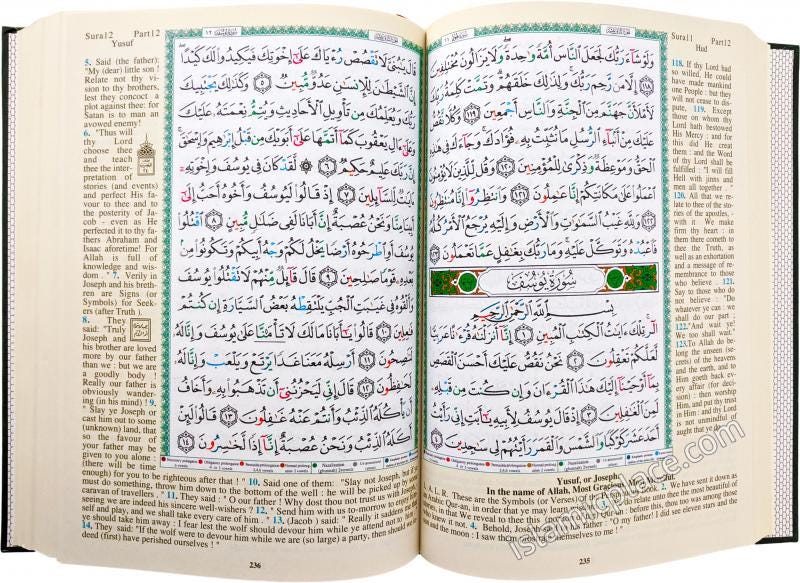 Sura11 Part12
Hud
وَلَوْ شَآءَ رَبُّكَ لَجَعَلَ ٱلنَّاسَ أُمَّةً وَٰحِدَةً وَلَا يَزَالُونَ مُخْتَلِفِينَ
۝١١٨ إِلَّا مَن رَّحِمَ رَبُّكَ وَلِذَٰلِكَ خَلَقَهُمْ وَتَمَّتْ كَلِمَةُ رَبِّكَ
لَأَمْلَأَنَّ جَهَنَّمَ مِنَ ٱلْجِنَّةِ وَٱلنَّاسِ أَجْمَعِينَ ۝١١٩ وَكُلًّا نَّقُصُّ
عَلَيْكَ مِنْ أَنۢبَآءِ ٱلرُّسُلِ مَا نُثَبِّتُ بِهِۦ فُؤَادَكَ وَجَآءَكَ فِى هَٰذِهِ
ٱلْحَقُّ وَمَوْعِظَةٌ وَذِكْرَىٰ لِلْمُؤْمِنِينَ ۝١٢٠ وَقُل لِّلَّذِينَ لَا يُؤْمِنُونَ
ٱعْمَلُوا۟ عَلَىٰ مَكَانَتِكُمْ إِنَّا عَٰمِلُونَ ۝١٢١ وَٱنتَظِرُوٓا۟ إِنَّا مُنتَظِرُونَ
۝١٢٢ وَلِلَّهِ غَيْبُ ٱلسَّمَٰوَٰتِ وَٱلْأَرْضِ وَإِلَيْهِ يُرْجَعُ ٱلْأَمْرُ كُلُّهُۥ
فَٱعْبُدْهُ وَتَوَكَّلْ عَلَيْهِ وَمَا رَبُّكَ بِغَٰفِلٍ عَمَّا تَعْمَلُونَ ۝١٢٣
سُورَةُ يُوسُفَ
بِسْمِ ٱللَّهِ ٱلرَّحْمَٰنِ ٱلرَّحِيمِ
الٓر تِلْكَ ءَايَٰتُ ٱلْكِتَٰبِ ٱلْمُبِينِ ۝١ إِنَّآ أَنزَلْنَٰهُ قُرْءَٰنًا عَرَبِيًّا
لَّعَلَّكُمْ تَعْقِلُونَ ۝٢ نَحْنُ نَقُصُّ عَلَيْكَ أَحْسَنَ ٱلْقَصَصِ
بِمَآ أَوْحَيْنَآ إِلَيْكَ هَٰذَا ٱلْقُرْءَانَ وَإِن كُنتَ مِن قَبْلِهِۦ
لَمِنَ ٱلْغَٰفِلِينَ ۝٣ إِذْ قَالَ يُوسُفُ لِأَبِيهِ يَٰٓأَبَتِ إِنِّى رَأَيْتُ
أَحَدَ عَشَرَ كَوْكَبًا وَٱلشَّمْسَ وَٱلْقَمَرَ رَأَيْتُهُمْ لِى سَٰجِدِينَ ۝٤
118. If thy Lord
had so willed. He could
have made mankind
one People : but they
will not cease to dis-
pute, 119. Except
those on whom thy
Lord hath bestowed
His Mercy : and for
this did He creat
them : and the Word
of thy Lord shall be
fulfilled : "I will fill
Hell with jinns and
men all together . "
120. All that we re-
late to thee of the sto-
ries of the apostles, -
with it We make
firm thy heart : in
them there cometh to
thee the Truth, as well
as an exhortation and
a message of re-
membrance to those
who believe . 121.
Say to those who do
not believe : "Do
whatever ye can : we
shall do our part ;
122."And wait ye!
We too shall wait."
123.To Allah do be-
long the unseen (se-
crets) of the heavens
and the earth, and to
Him goeth back ev-
ery affair (for deci-
sion) : then worship
Him, and put thy trust
in Him : and thy Lord
is not unmindful of
aught that ye do .
Yusuf, or Joseph
In the name of Allah, Most Gracious, Most Merciful
1. A. L. R. These are the Symbols (or Verses) of the Perspicuous Book. 2. We have sent it down as
an Arabic Qur-an, in order that ye may learn wisdom. 3. We do relate unto thee the most beautiful of
stories, in that We reveal to this (portion of the) Qur-an : before this, thou too was among those
who knew it not. 4. Behold, Joseph said to his father : "O my father! I did see eleven stars and the
sun and the moon : I saw them prostrate themselves to me! "
235
Sura12 Part12
Yusuf
قَالَ يَٰبُنَىَّ لَا تَقْصُصْ رُءْيَاكَ عَلَىٰٓ إِخْوَتِكَ فَيَكِيدُوا۟ لَكَ كَيْدًا
إِنَّ ٱلشَّيْطَٰنَ لِلْإِنسَٰنِ عَدُوٌّ مُّبِينٌ ۝٥ وَكَذَٰلِكَ يَجْتَبِيكَ
رَبُّكَ وَيُعَلِّمُكَ مِن تَأْوِيلِ ٱلْأَحَادِيثِ وَيُتِمُّ نِعْمَتَهُۥ عَلَيْكَ
وَعَلَىٰٓ ءَالِ يَعْقُوبَ كَمَآ أَتَمَّهَا عَلَىٰٓ أَبَوَيْكَ مِن قَبْلُ إِبْرَٰهِيمَ وَإِسْحَٰقَ
إِنَّ رَبَّكَ عَلِيمٌ حَكِيمٌ ۝٦ لَّقَدْ كَانَ فِى يُوسُفَ وَإِخْوَتِهِۦٓ
ءَايَٰتٌ لِّلسَّآئِلِينَ ۝٧ إِذْ قَالُوا۟ لَيُوسُفُ وَأَخُوهُ أَحَبُّ إِلَىٰٓ
أَبِينَا مِنَّا وَنَحْنُ عُصْبَةٌ إِنَّ أَبَانَا لَفِى ضَلَٰلٍ مُّبِينٍ ۝٨ ٱقْتُلُوا۟
يُوسُفَ أَوِ ٱطْرَحُوهُ أَرْضًا يَخْلُ لَكُمْ وَجْهُ أَبِيكُمْ وَتَكُونُوا۟ مِنۢ
بَعْدِهِۦ قَوْمًا صَٰلِحِينَ ۝٩ قَالَ قَآئِلٌ مِّنْهُمْ لَا تَقْتُلُوا۟ يُوسُفَ
وَأَلْقُوهُ فِى غَيَٰبَتِ ٱلْجُبِّ يَلْتَقِطْهُ بَعْضُ ٱلسَّيَّارَةِ إِن كُنتُمْ
فَٰعِلِينَ ۝١٠ قَالُوا۟ يَٰٓأَبَانَا مَا لَكَ لَا تَأْمَ۫نَّا عَلَىٰ يُوسُفَ وَإِنَّا لَهُۥ
لَنَٰصِحُونَ ۝١١ أَرْسِلْهُ مَعَنَا غَدًا يَرْتَعْ وَيَلْعَبْ وَإِنَّا لَهُۥ
لَحَٰفِظُونَ ۝١٢ قَالَ إِنِّى لَيَحْزُنُنِىٓ أَن تَذْهَبُوا۟ بِهِۦ وَأَخَافُ
أَن يَأْكُلَهُ ٱلذِّئْبُ وَأَنتُمْ عَنْهُ غَٰفِلُونَ ۝١٣ قَالُوا۟ لَئِنْ
أَكَلَهُ ٱلذِّئْبُ وَنَحْنُ عُصْبَةٌ إِنَّآ إِذًا لَّخَٰسِرُونَ ۝١٤
5. Said (the father):
"My (dear) little son !
Relate not thy vi-
sion to thy brothers,
lest they concoct a
plot against thee: for
Satan is to man an
avowed enemy!
6. "Thus will
thy Lord
choose thee
and teach
thee the inter-
pretation of
stories (and events)
and perfect His fa-
vour to thee and to
the posterity of Ja-
cob - even as He
perfected it to thy fa-
thers Abraham and
Isaac aforetime! For
Allah is full of
knowledge and wis-
dom . " 7. Verily in
Joseph and his breth-
ren are Signs (or
Symbols) for Seek-
ers (after Truth ).
8. They
said: "Truly
Joseph and
his brother are loved
more by our father
than we : but we are
a goodly body !
Really our father is
obviously wander-
ing (in his mind) ! 9.
" Slay ye Joseph or
cast him out to some
(unknown) land, that
so the favour of
your father may be
given to you alone :
(there will be time
enough) for you to be righteous after that ! " 10. Said one of them: "Slay not Joseph, but if ye
must do something, throw him down to the bottom of the well : he will be picked up by some
caravan of travellers . " 11. They said : " O our father ! Why dost thou not trust us with Joseph,-
seeing we are indeed his sincere well-wishers ? 12. " Send him with us to-morrow to enjoy him-
self and play, and we shall take every care of him . " 13. (Jacob ) said : "Really it saddens me that
ye should take him away : I fear lest the wolf should devour him while ye attend not to him . "
14. They said: "If the wolf were to devour him while we are (so large) a party, then should we in-
deed (first) have perished ourselves ! "
236
islamicplace.com